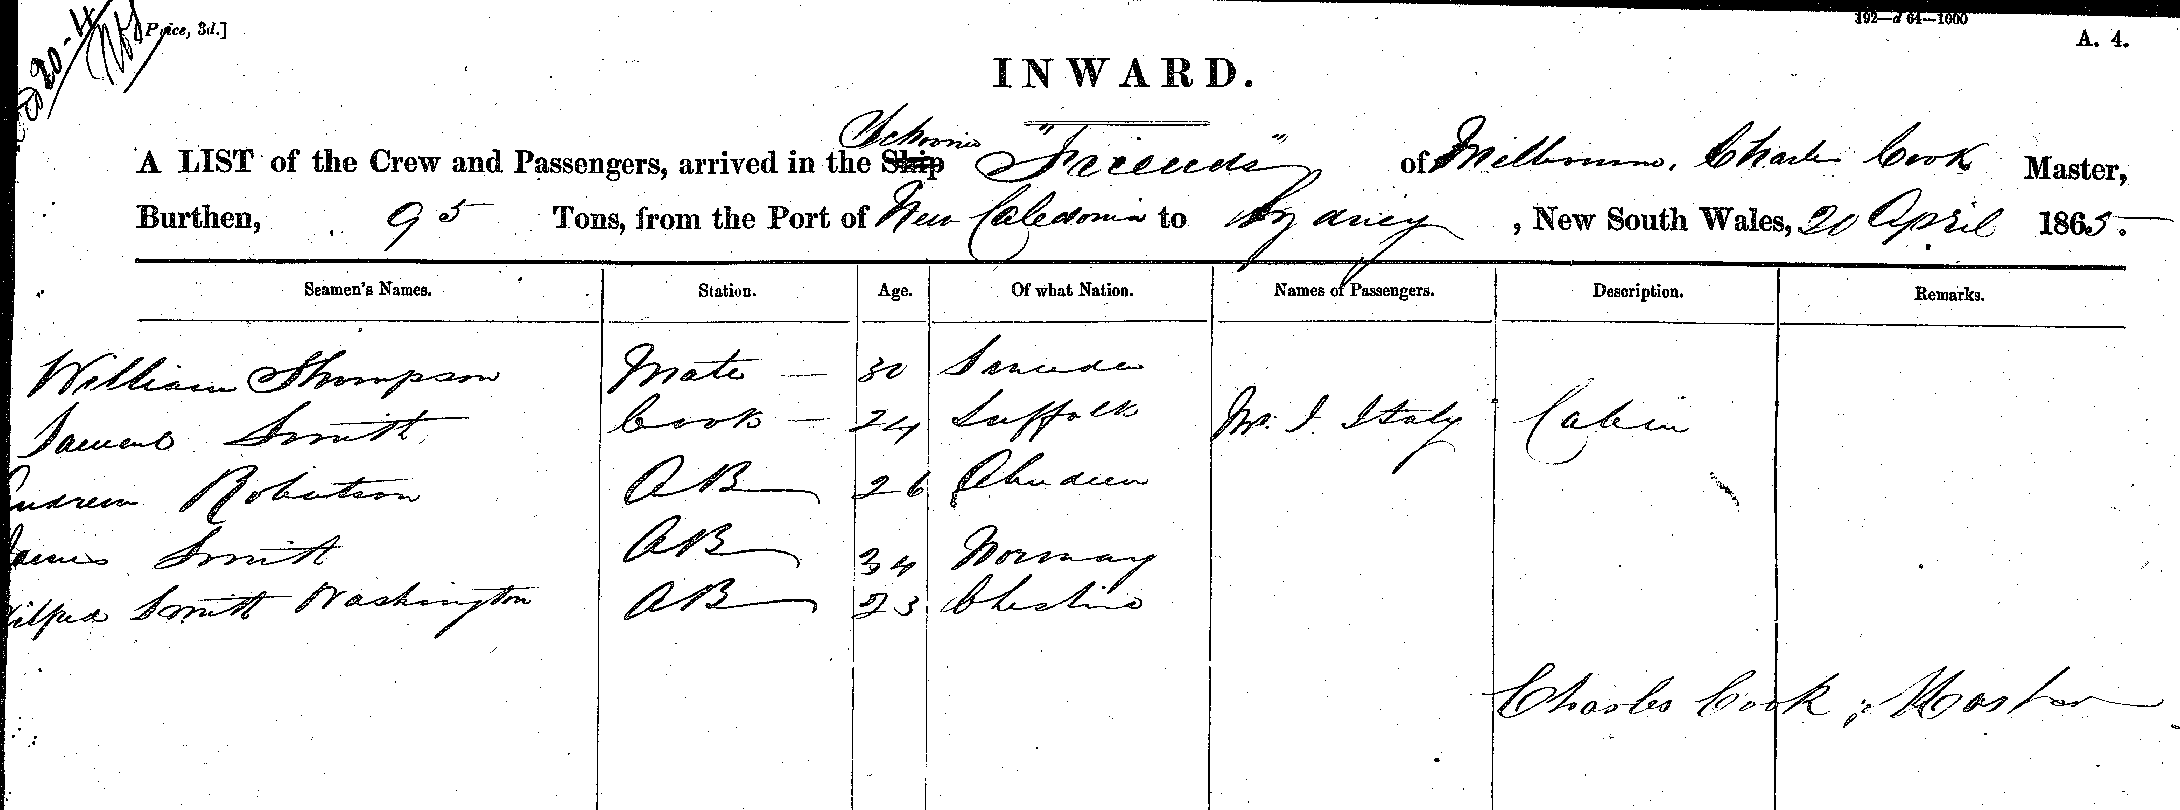 20-4
Price, 3d.]
192—d 64—1000
A. 4.
INWARD.
Schooner
A LIST of the Crew and Passengers, arrived in the Ship "Friends" of Melbourne, Charles Cook Master,
Burthen, 95 Tons, from the Port of New Caledonia to Sydney, New South Wales, 20 April 1865.
Seamen's Names. Station. Age. Of what Nation. Names of Passengers. Description. Remarks.
William Thompson Mate — 30
Samuel Smith Cook — 24 Suffolk Mr. J. Italy Cabin
Andrew Robertson AB 26 Aberdeen
James Smith AB 34 Norway
Wilfred Smith Washington AB 23
Charles Cook, Master